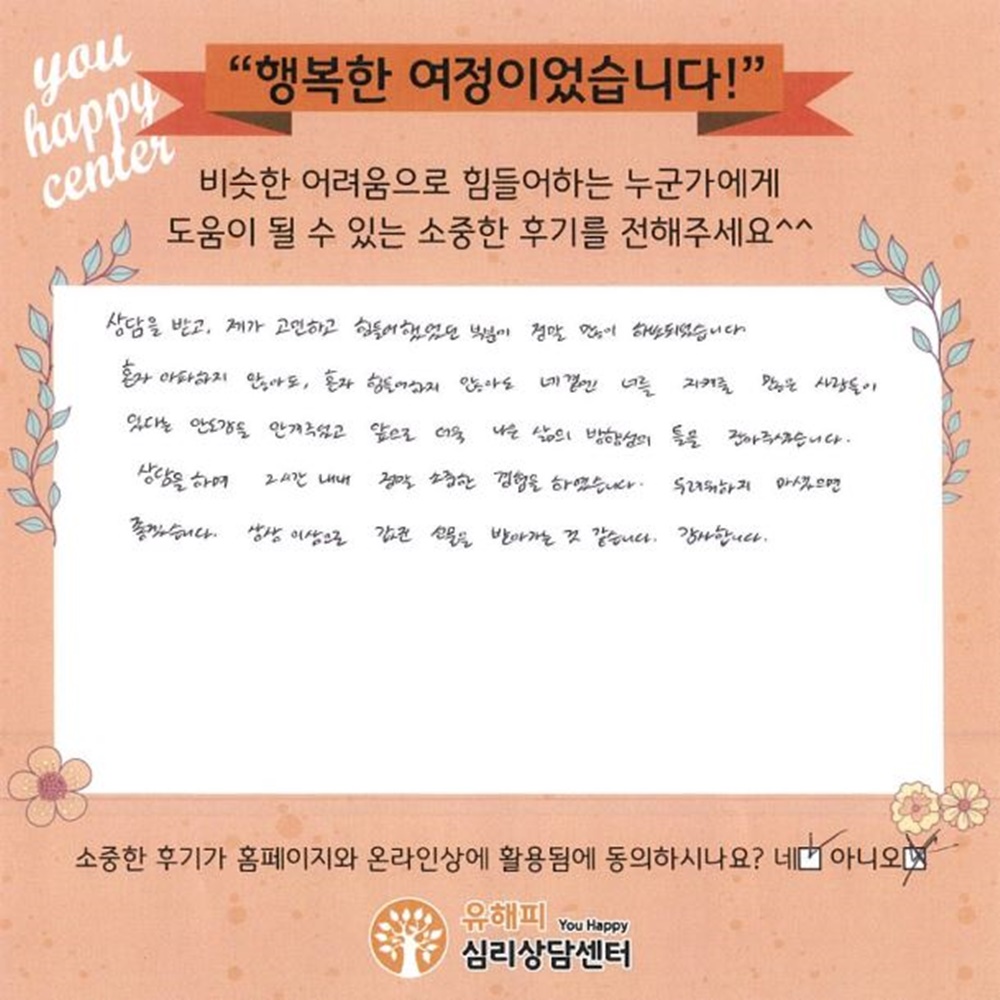 you
happy
center
“행복한 여정이었습니다!”
비슷한 어려움으로 힘들어하는 누군가에게
도움이 될 수 있는 소중한 후기를 전해주세요^^
상담을 받고, 제가 고민하고 힘들어했었던 부분이 정말 많이 해소되었습니다.
혼자 아파하지 않아도, 혼자 힘들어하지 않아도 네 곁엔 너를 지켜줄 많은 사람들이
있다는 안도감을 안겨주었고 앞으로 더욱 나은 삶의 방향성의 틀을 잡아주셨습니다.
상담을 하며 2시간 내내 정말 소중한 경험을 하였습니다. 두려워하지 마셨으면
좋겠습니다. 상상 이상으로 값진 선물을 받아가는 것 같습니다. 감사합니다.
소중한 후기가 홈페이지와 온라인상에 활용됨에 동의하시나요? 네 아니오
유해피 You Happy
심리상담센터